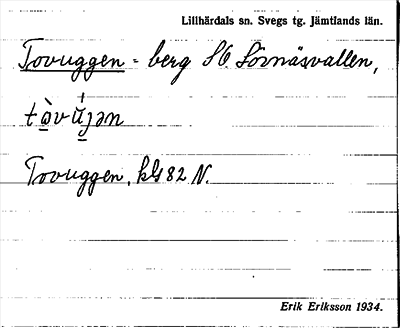 Lillhärdals sn. Svegs tg. Jämtlands län.
Tovuggen - berg SO. Sörnäsvallen,
tàvújən
Tovuggen, kbl 82 N.
Erik Eriksson 1934.